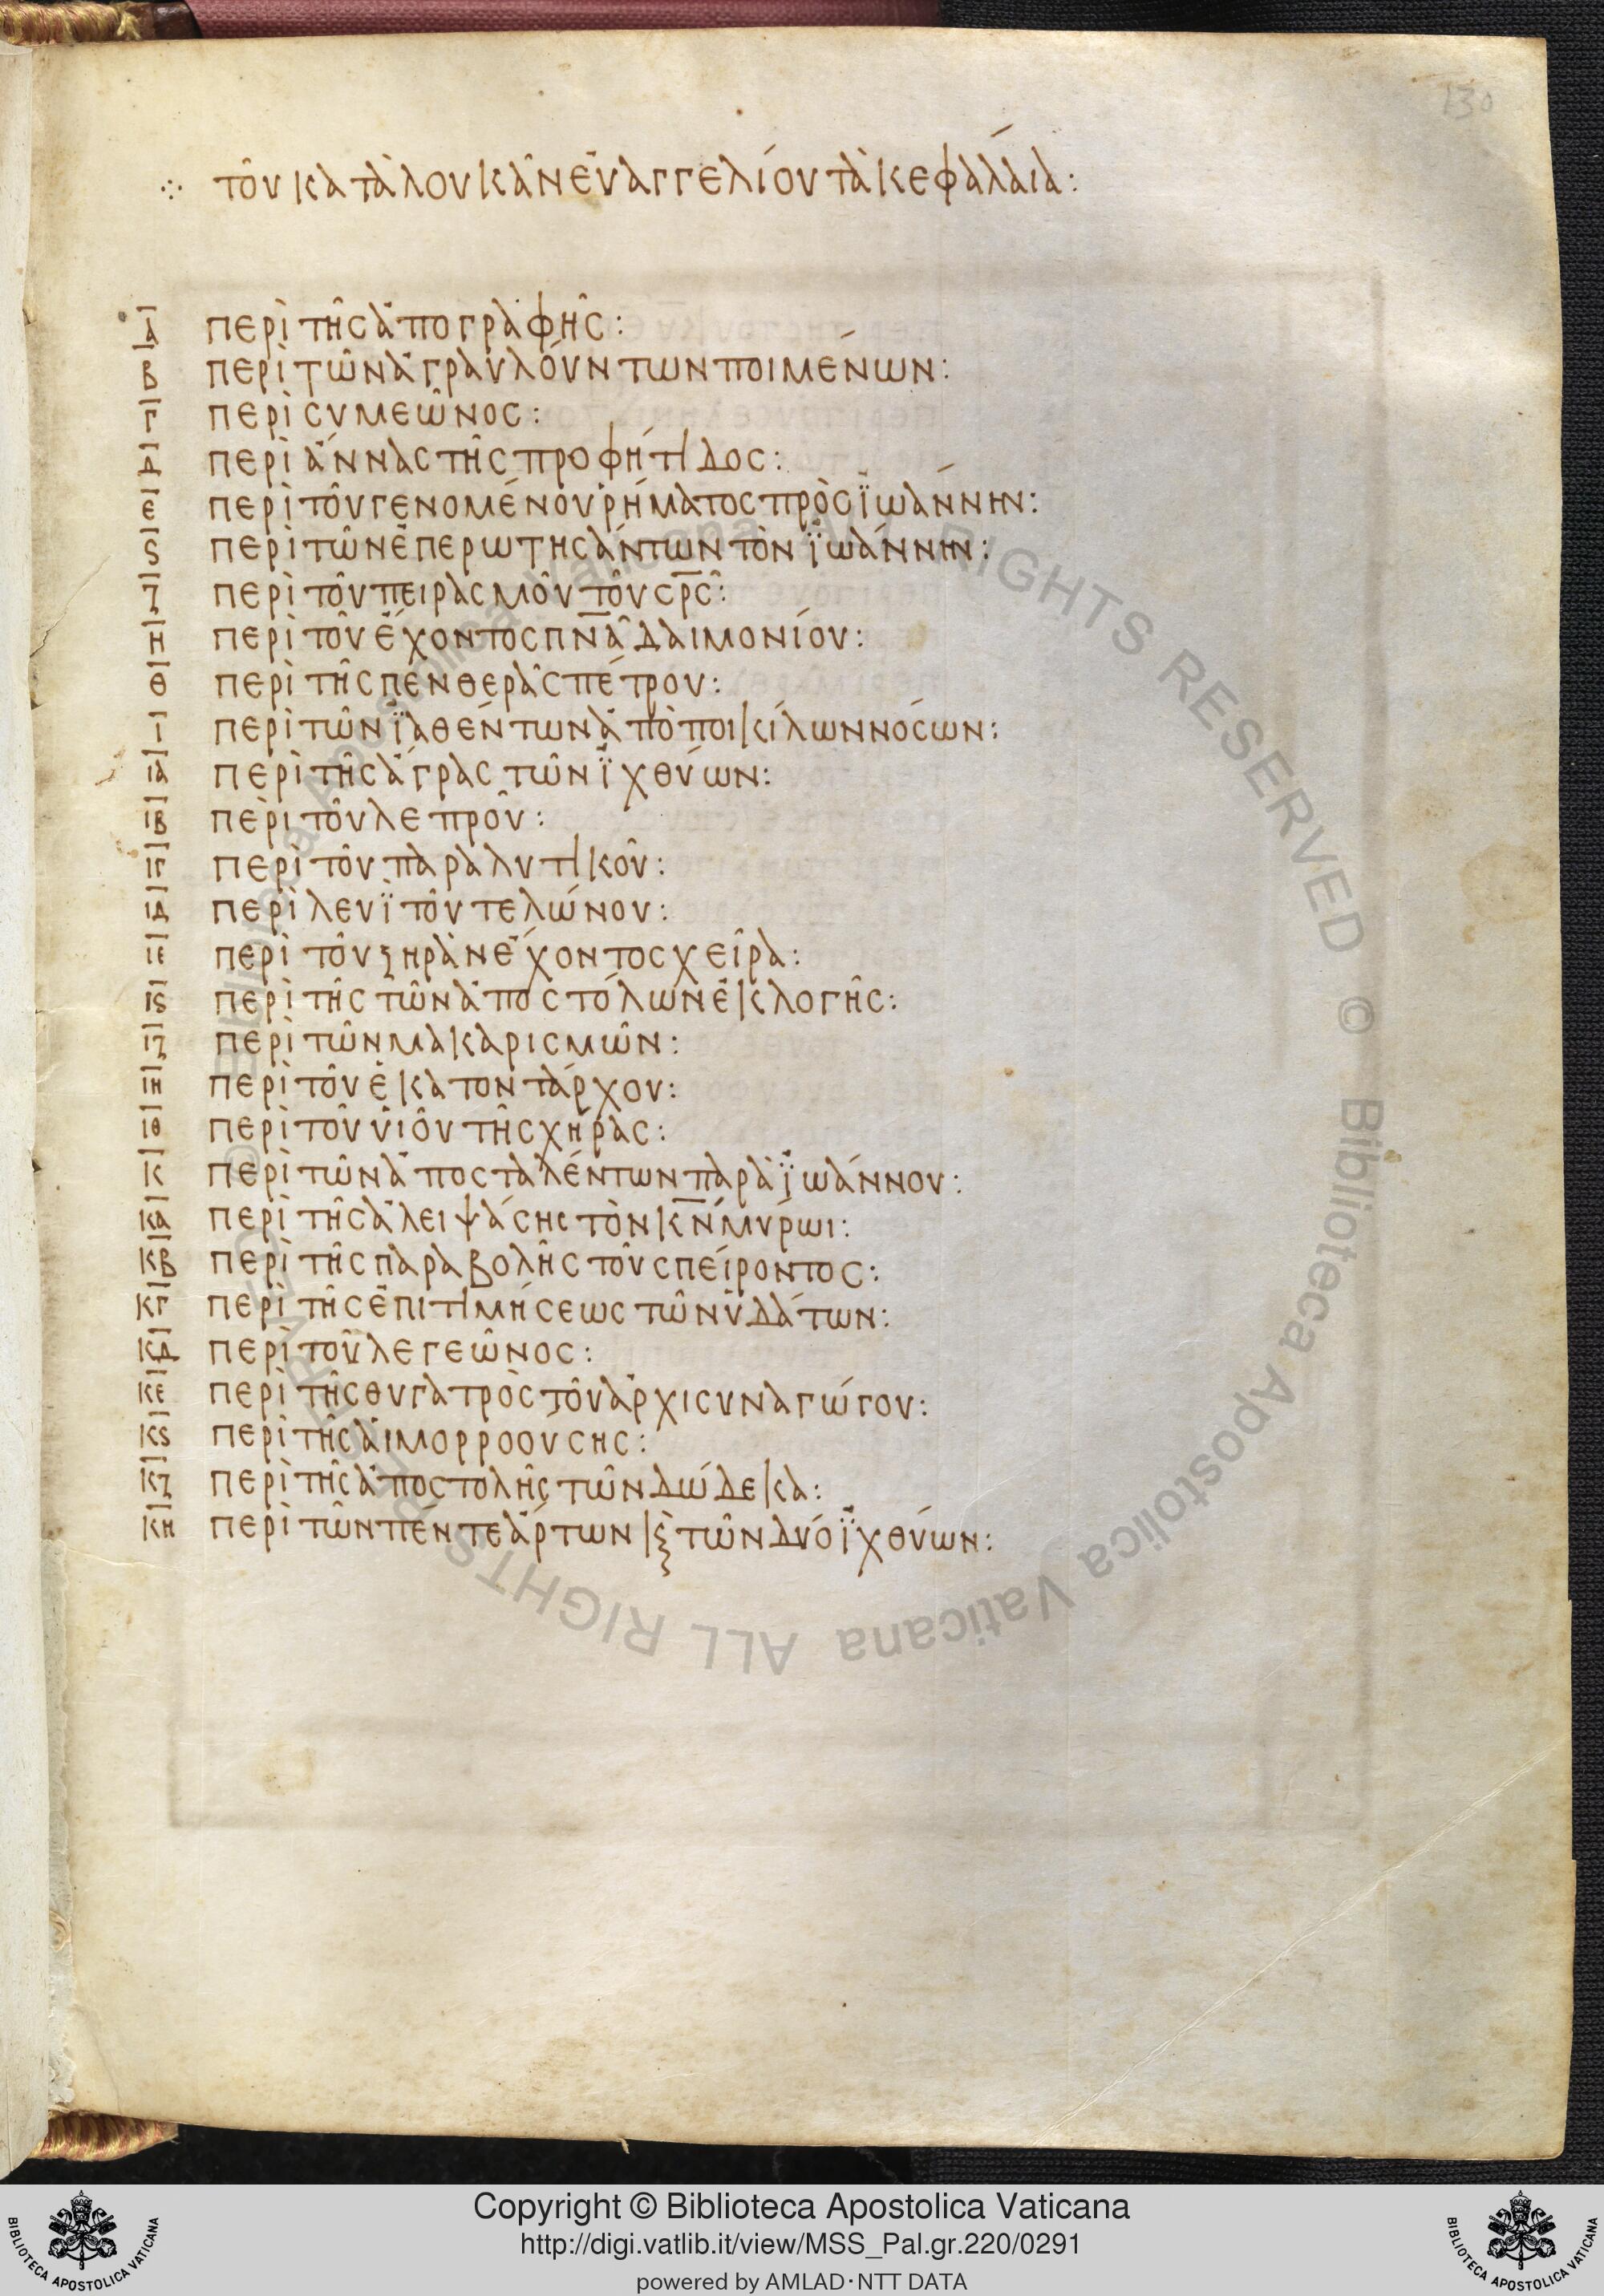 130
⁘ τοῦ κατὰ λουκᾶν εὐαγγελίου τὰ κεφάλαια:
Α περὶ τῆς ἀπογραφῆς:
Β περὶ τῶν ἀγραυλούντων ποιμένων:
Γ περὶ συμεῶνος:
Δ περὶ ἄννας τῆς προφήτιδος:
Ε περὶ τοῦ γενομένου ῥήματος πρὸς ἰωάννην:
Ϛ περὶ τῶν ἐπερωτησάντων τὸν ἰωάννην:
Ζ περὶ τοῦ πειρασμοῦ τοῦ σρς:
Η περὶ τοῦ ἔχοντος πνα δαιμονίου:
Θ περὶ τῆς πενθερᾶς πέτρου:
Ι περὶ τῶν ἰαθέντων ἀπὸ ποικίλων νόσων:
ΙΑ περὶ τῆς ἄγρας τῶν ἰχθύων:
ΙΒ περὶ τοῦ λεπροῦ:
ΙΓ περὶ τοῦ παραλυτικοῦ:
ΙΔ περὶ λευῒ τοῦ τελώνου:
ΙΕ περὶ τοῦ ξηρὰν ἔχοντος χεῖρα:
ΙϚ περὶ τῆς τῶν ἀποστόλων ἐκλογῆς:
ΙΖ περὶ τῶν μακαρισμῶν:
ΙΗ περὶ τοῦ ἑκατοντάρχου:
ΙΘ περὶ τοῦ υἱοῦ τῆς χήρας:
Κ περὶ τῶν ἀποσταλέντων παρὰ ἰωάννου:
ΚΑ περὶ τῆς ἀλειψάσης τὸν κν μύρωι:
ΚΒ περὶ τῆς παραβολῆς τοῦ σπείροντος:
ΚΓ περὶ τῆς ἐπιτιμήσεως τῶν ὑδάτων:
ΚΔ περὶ τοῦ λεγεῶνος:
ΚΕ περὶ τῆς θυγατρὸς τοῦ ἀρχισυναγώγου:
ΚϚ περὶ τῆς αἱμορροούσης:
ΚΖ περὶ τῆς ἀποστολῆς τῶν δώδεκα:
ΚΗ περὶ τῶν πέντε ἄρτων ϗ τῶν δύο ἰχθύων:
© Biblioteca Apostolica Vaticana ALL RIGHTS RESERVED © Biblioteca Apostolica Vaticana ALL RIGHTS RESERVED
Copyright © Biblioteca Apostolica Vaticana
http://digi.vatlib.it/view/MSS_Pal.gr.220/0291
powered by AMLAD·NTT DATA
BIBLIOTECA APOSTOLICA VATICANA
BIBLIOTECA APOSTOLICA VATICANA